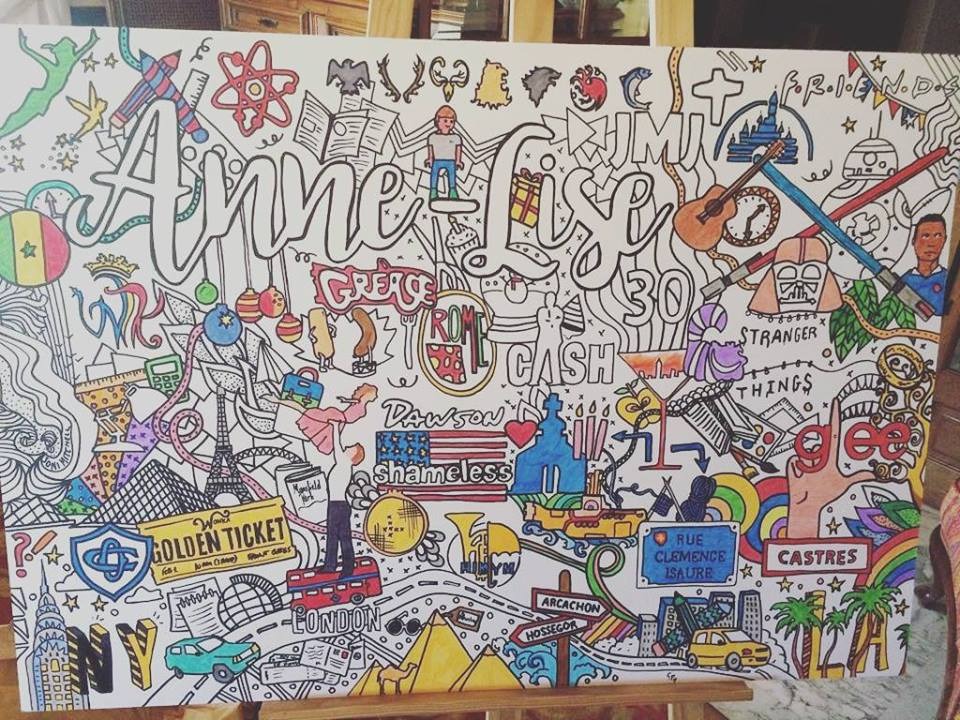 F.R.I.E.N.D.S
JMJ
Anne-Lise
GREASE
30
ROME
CASH
STRANGER
THINGS
DAWSON
glee
shameless
Mansfield
Park
WONKA
GOLDEN TICKET
HIMYM
RUE
CLEMENCE
ISAURE
CASTRES
ARCACHON
HOSSEGOR
LONDON
NY
LA